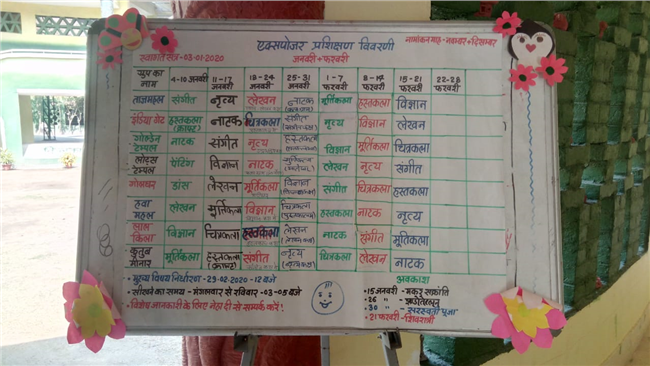 एक्सपोजर प्रशिक्षण विवरणी
नामांकन माह - नवम्बर + दिसम्बर
स्वागत सत्र - 03-01-2020
जनवरी + फरवरी
ग्रुप का नाम 4-10 जनवरी 11-17 जनवरी 18-24 जनवरी 25-31 जनवरी 1-7 फरवरी 8-14 फरवरी 15-21 फरवरी 22-28 फरवरी
ताजमहल संगीत नृत्य लेखन नाटक मूर्तिकला हस्तकला विज्ञान
इंडिया गेट हस्तकला (क्राफ्ट) नाटक चित्रकला संगीत नृत्य विज्ञान लेखन
गोल्डेन टेम्पल नाटक संगीत नृत्य हस्तकला विज्ञान मूर्तिकला चित्रकला
लोट्स टेम्पल पेंटिंग विज्ञान नाटक मूर्तिकला लेखन नृत्य संगीत
गोलघर डांस लेखन मूर्तिकला विज्ञान संगीत चित्रकला हस्तकला
हवा महल लेखन मूर्तिकला विज्ञान चित्रकला हस्तकला नाटक नृत्य
लाल किला विज्ञान चित्रकला हस्तकला लेखन नाटक संगीत मूर्तिकला
कुतुब मीनार मूर्तिकला हस्तकला (क्राफ्ट) संगीत नृत्य चित्रकला लेखन नाटक
• मुख्य विषय निर्धारण - 29-02-2020 - 12 बजे
• सीखने का समय - मंगलवार से रविवार - 03-05 बजे
• विशेष जानकारी के लिए नेहा दी से सम्पर्क करें !
अवकाश
• 15 जनवरी - मकर संक्रांति
• 26 "
• 30 " - सरस्वती पूजा
• 21 फरवरी - शिवरात्री